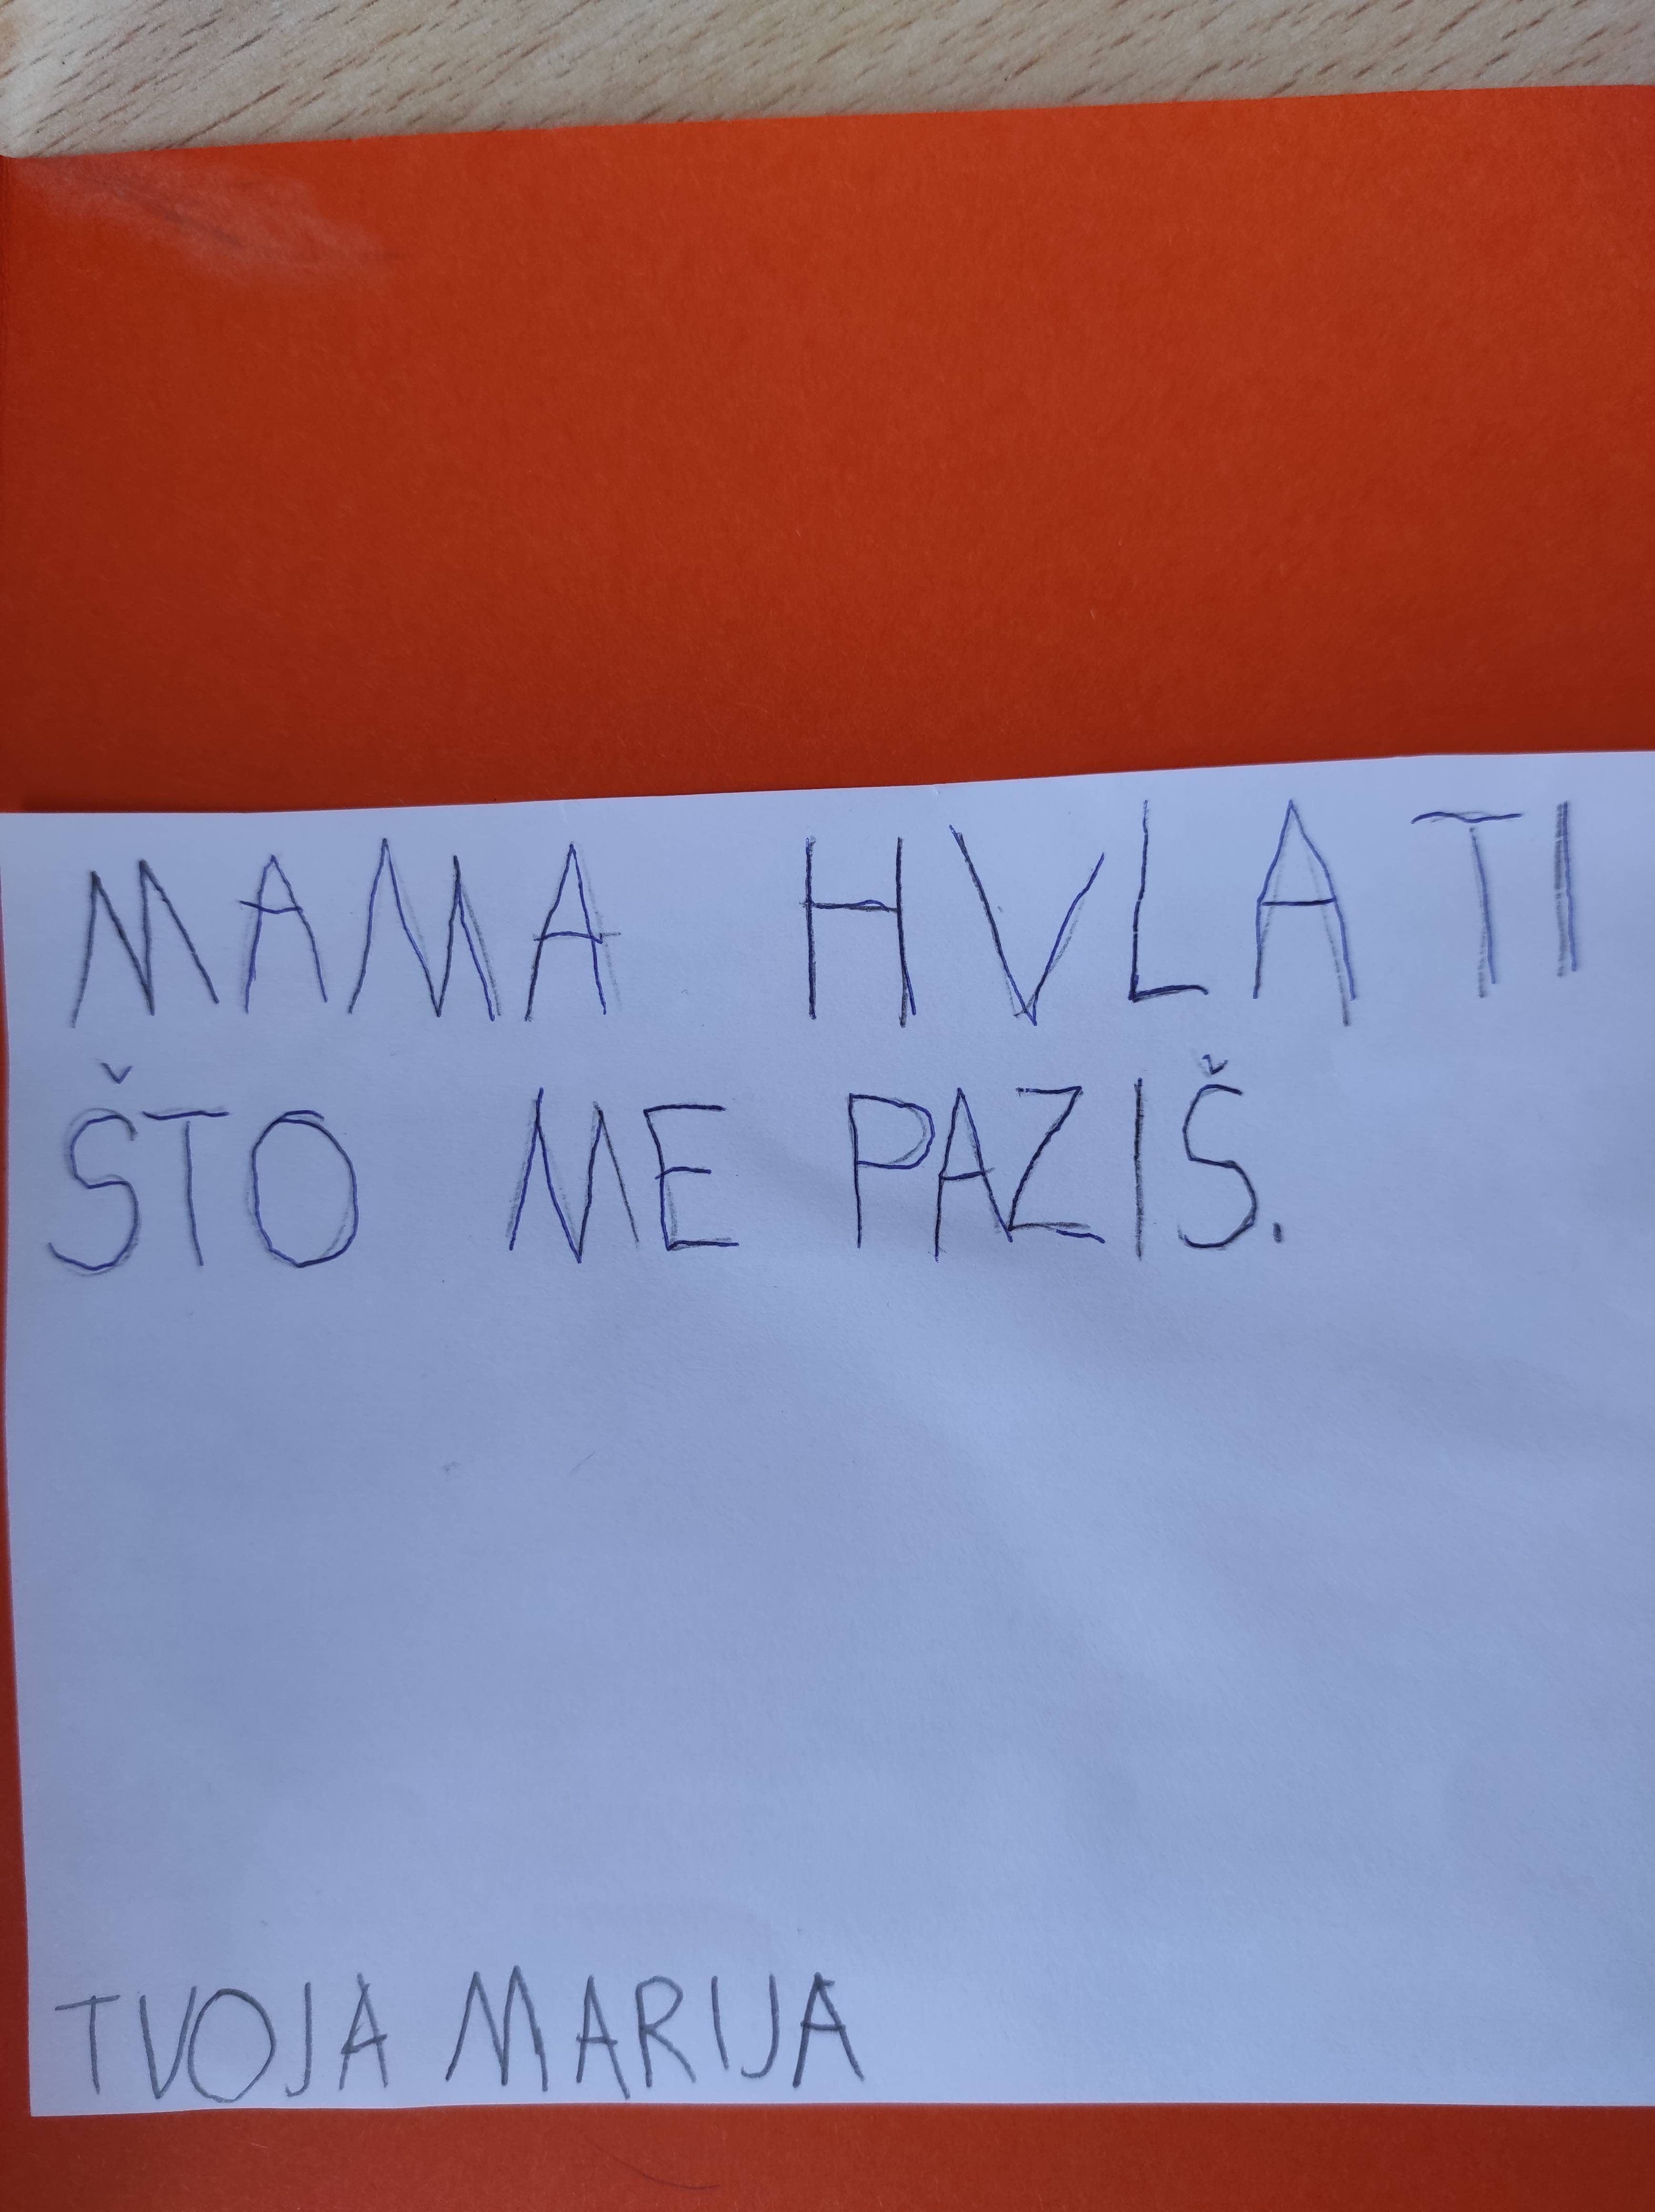 MAMA HVLA TI
ŠTO ME PAZIŠ.
TVOJA MARIJA